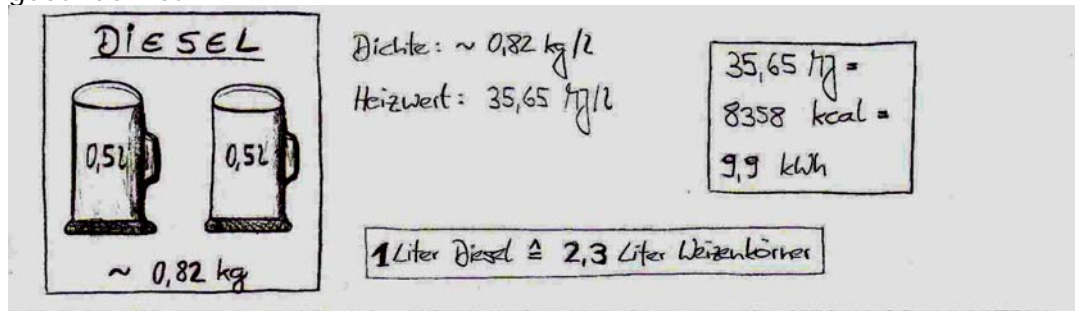 DIESEL
0,5l
0,5l
~ 0,82 kg
Dichte: ~ 0,82 kg/l
Heizwert: 35,65 MJ/l
35,65 MJ =
8358 kcal =
9,9 kWh
1 Liter Diesel ≙ 2,3 Liter Weizenkörner